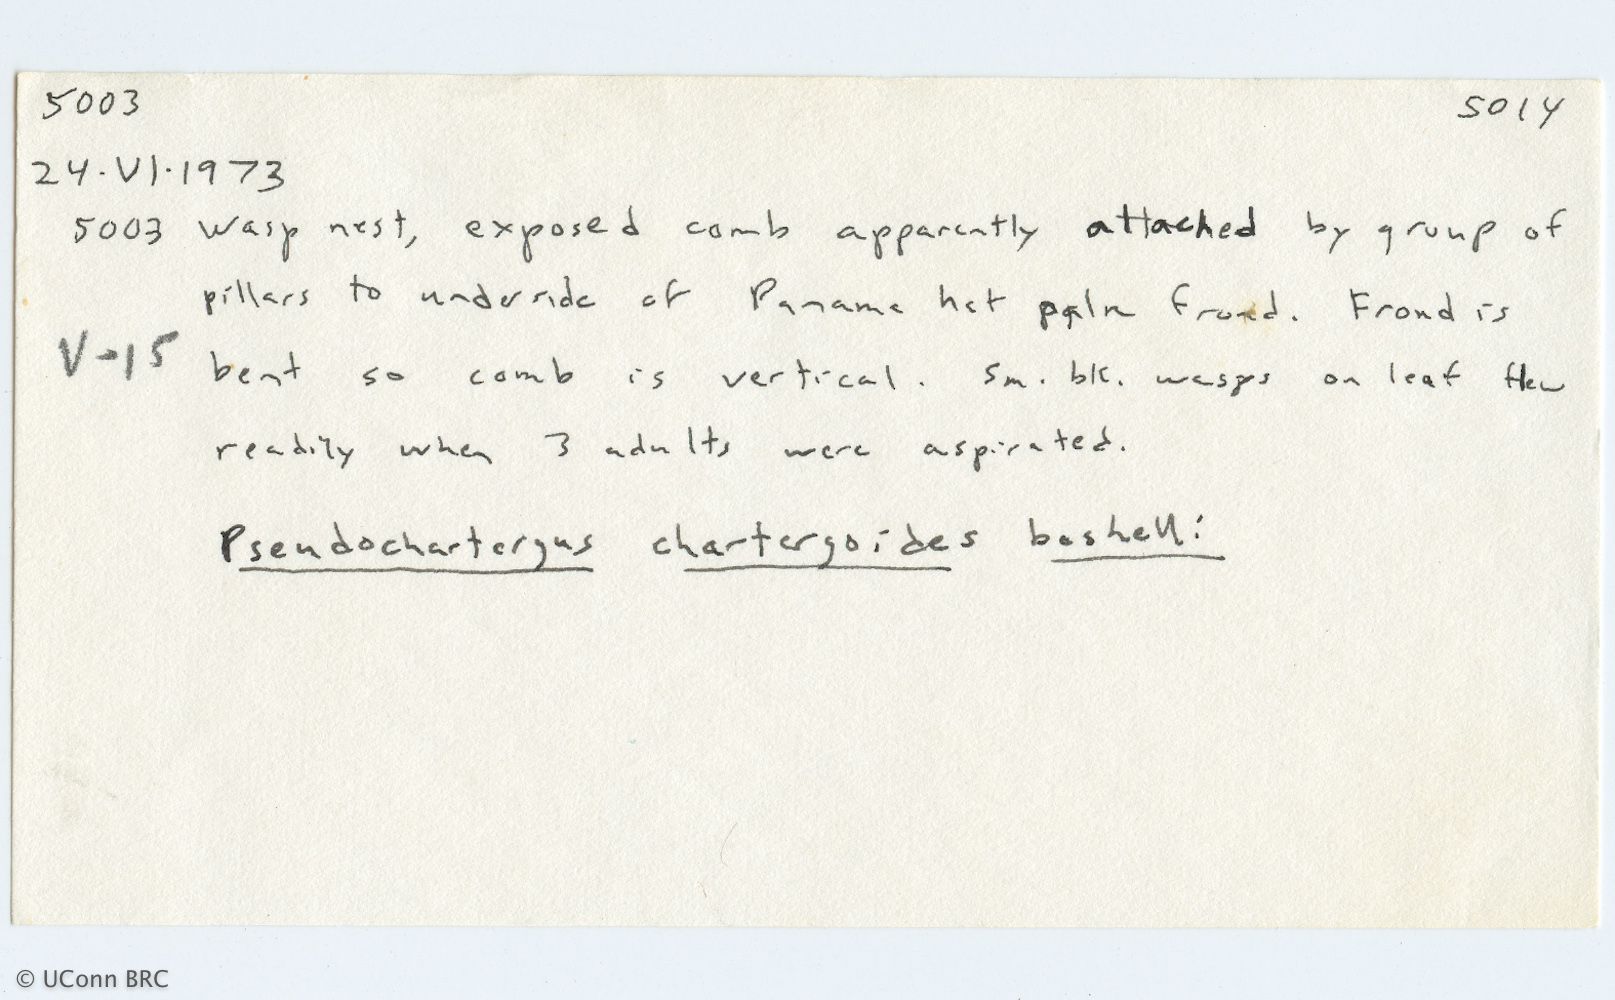 5003 5014
24·VI·1973
5003 wasp nest, exposed comb apparently attached by group of
pillars to underside of Panama hat palm frond. Frond is
V-15 bent so comb is vertical. Sm. blk. wasps on leaf flew
readily when 3 adults were aspirated.
Pseudochartergus chartergoides boshelli
© UConn BRC